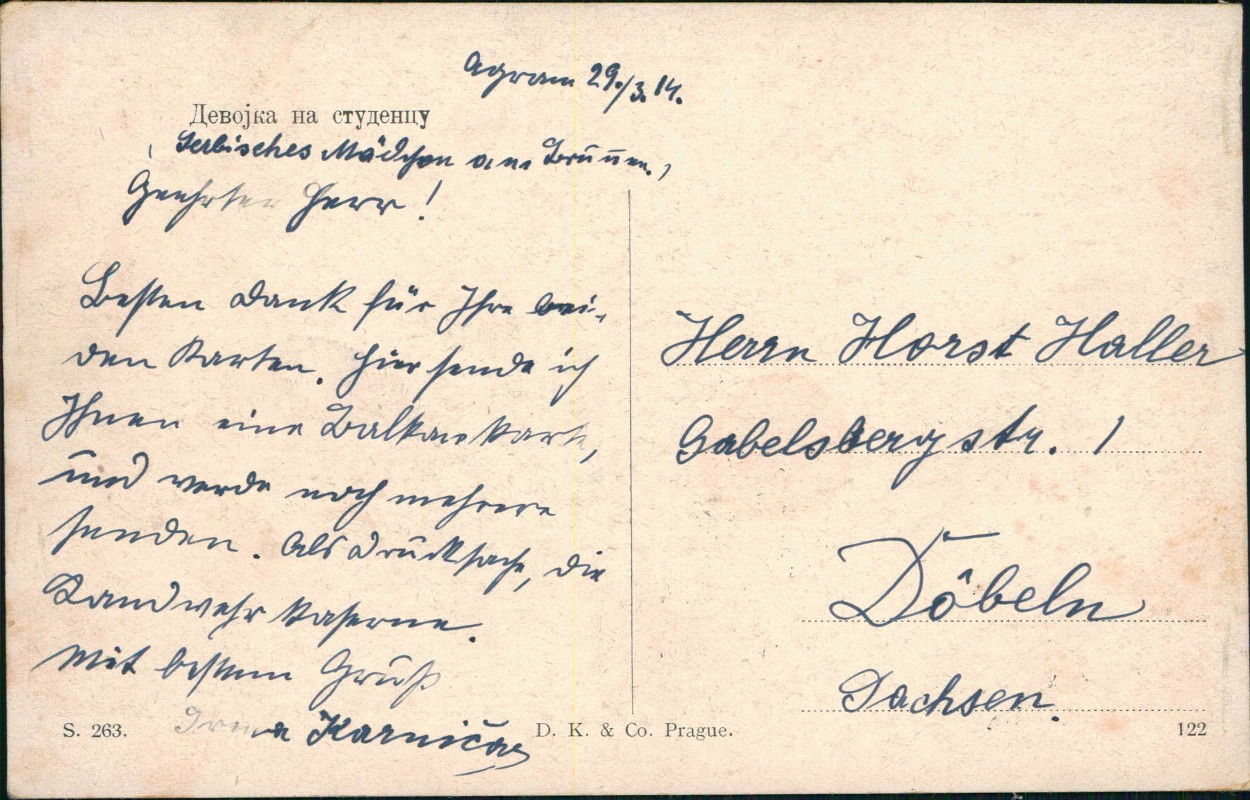 Agram 29./3. 14.
Девојка на студенцу
(Serbisches Mädchen am Brunnen.)
Geehrter Herr!
Besten Dank für Ihre bei-
den Karten. Hier sende ich
Ihnen eine Balkankarte,
und werde noch mehrere
senden. Als Drucksache, die
Landwehrkaserne.
Mit bestem Gruß
Irma
S. 263.
D. K. & Co. Prague.
Herrn Horst Haller
Gabelsbergstr. 1
Döbeln
Sachsen.
122